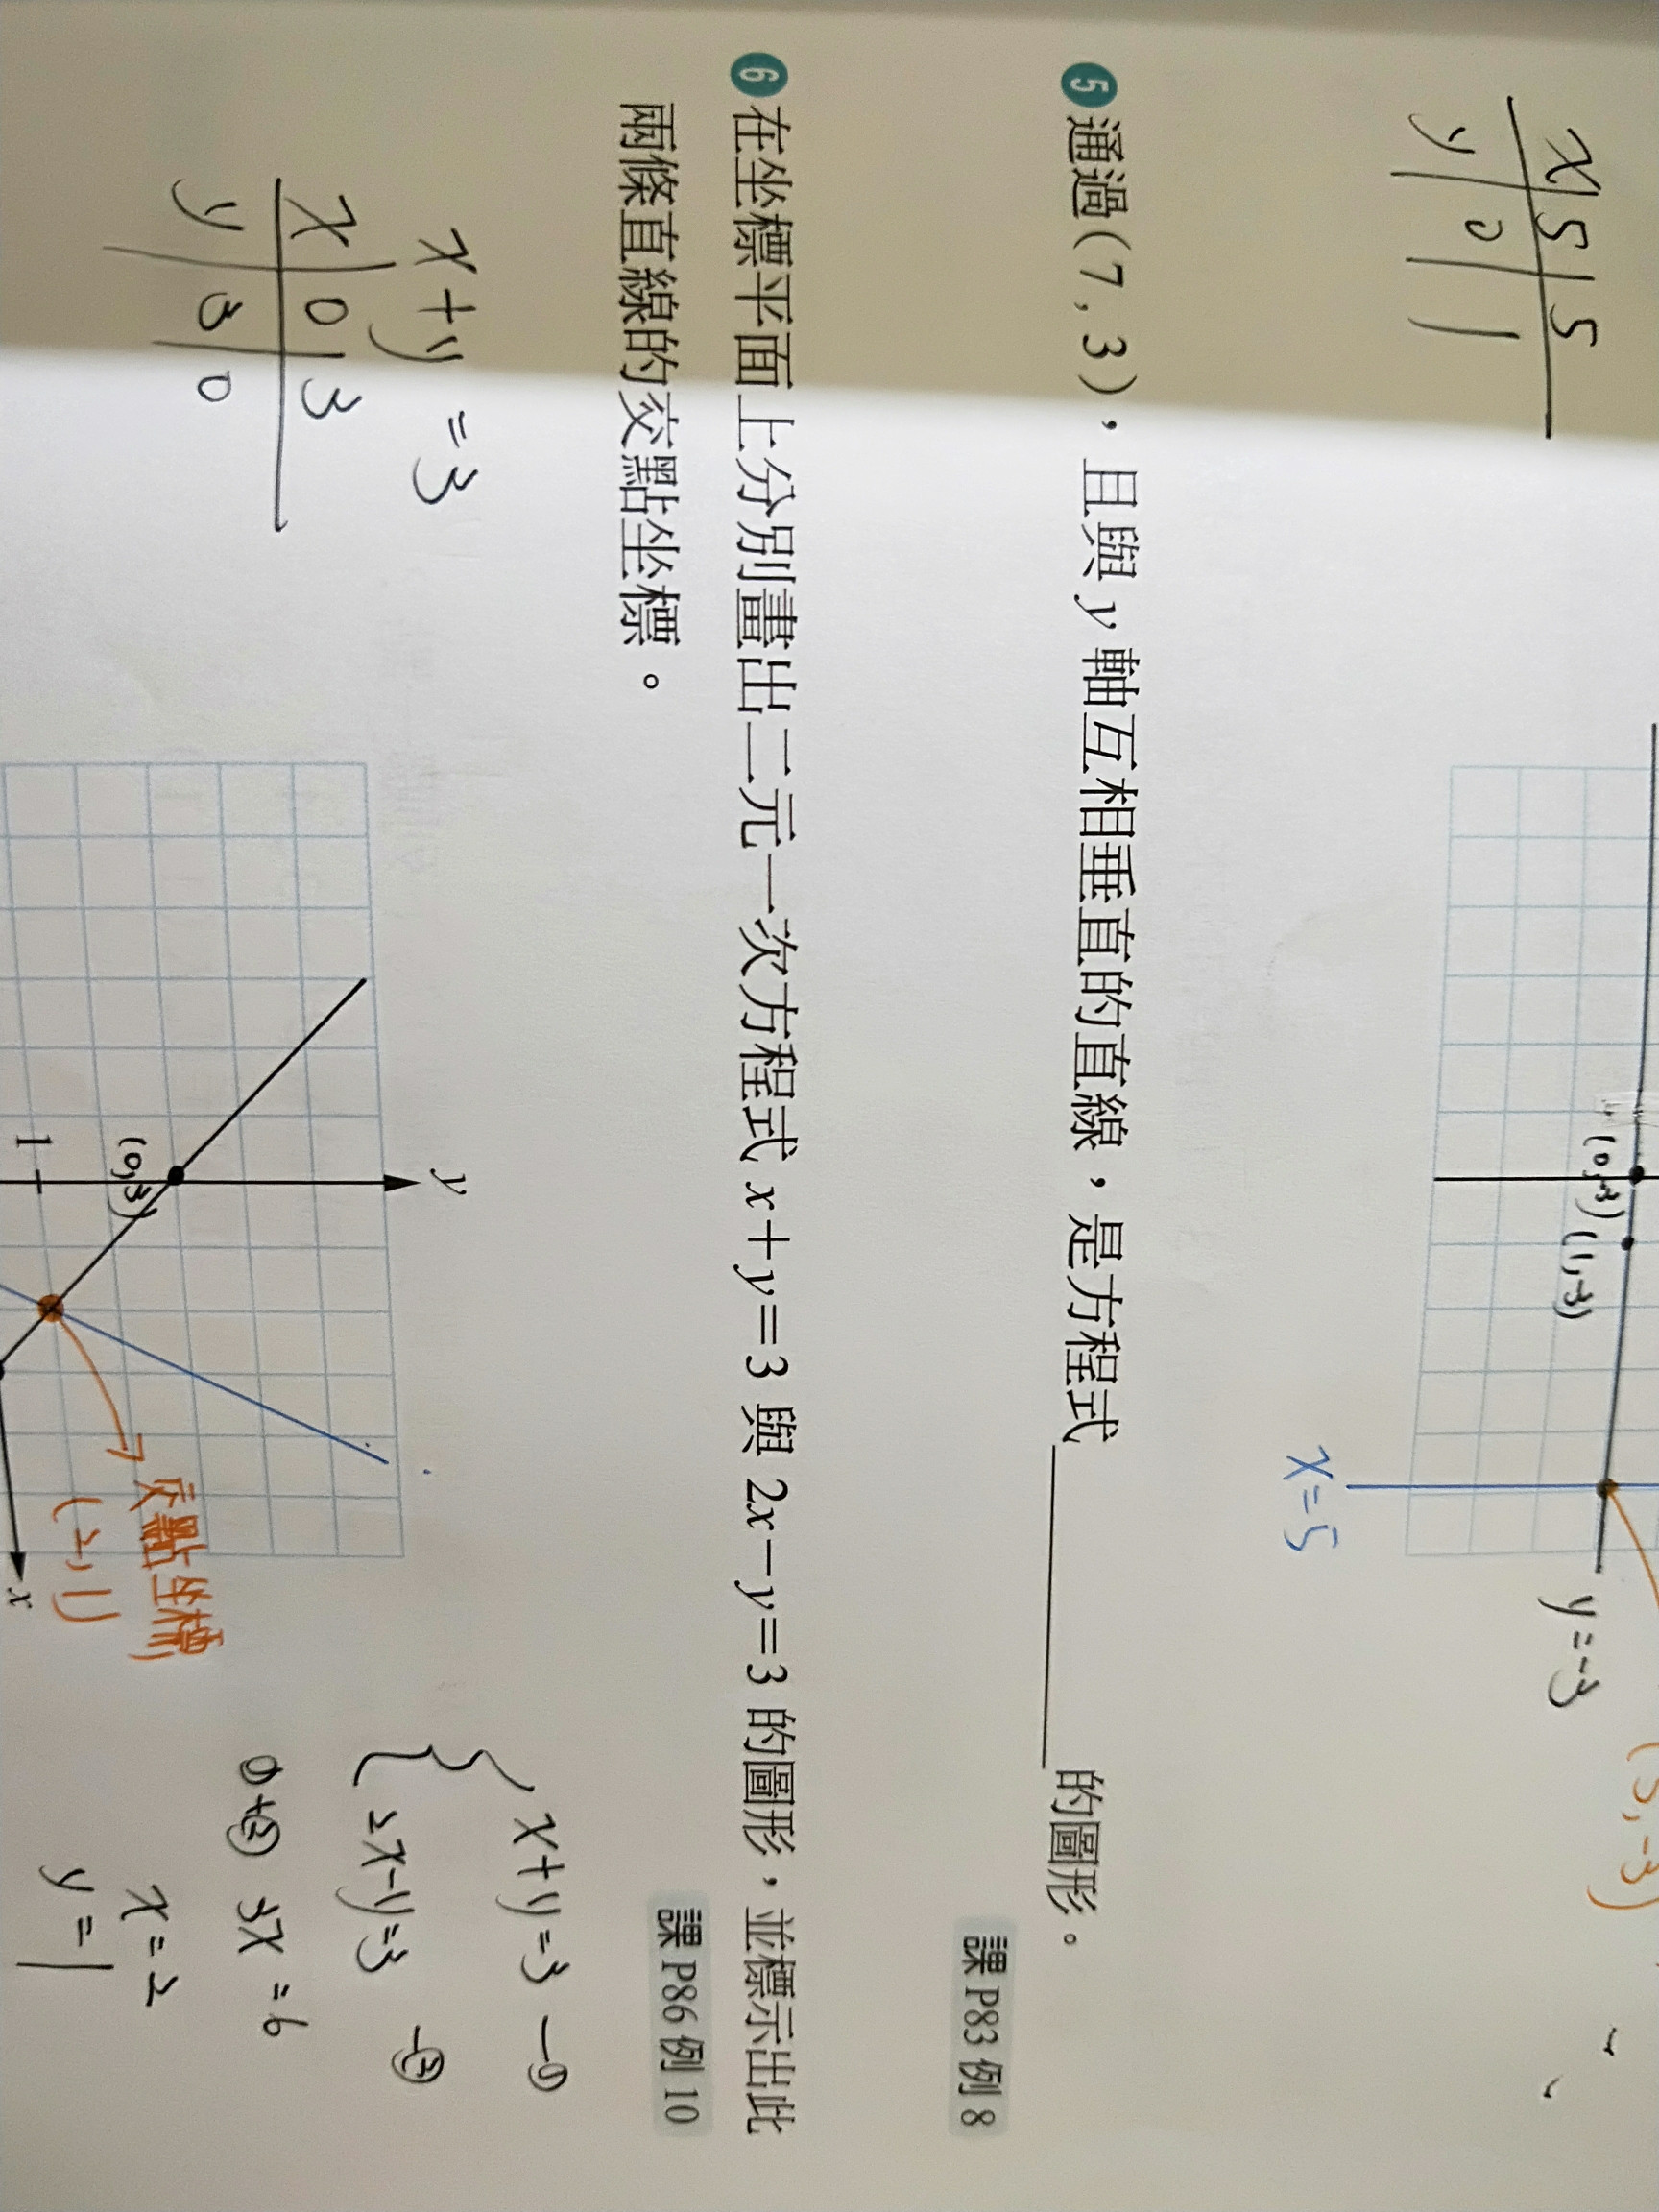 x 5 5
y 0 1
(0,-3) (1,-3)
x=5
y=-3
(5,-3)
5 通過(7,3),且與 y 軸互相垂直的直線,是方程式________的圖形。
課 P83 例 8
6 在坐標平面上分別畫出二元一次方程式 x+y=3 與 2x-y=3 的圖形,並標示出此
兩條直線的交點坐標。
課 P86 例 10
x+y=3
x 0 3
y 3 0
y
(0,3)
1
x
交點坐標
(2,1)
x+y=3 —①
2x-y=3 —②
①+② 3x=6
x=2
y=1